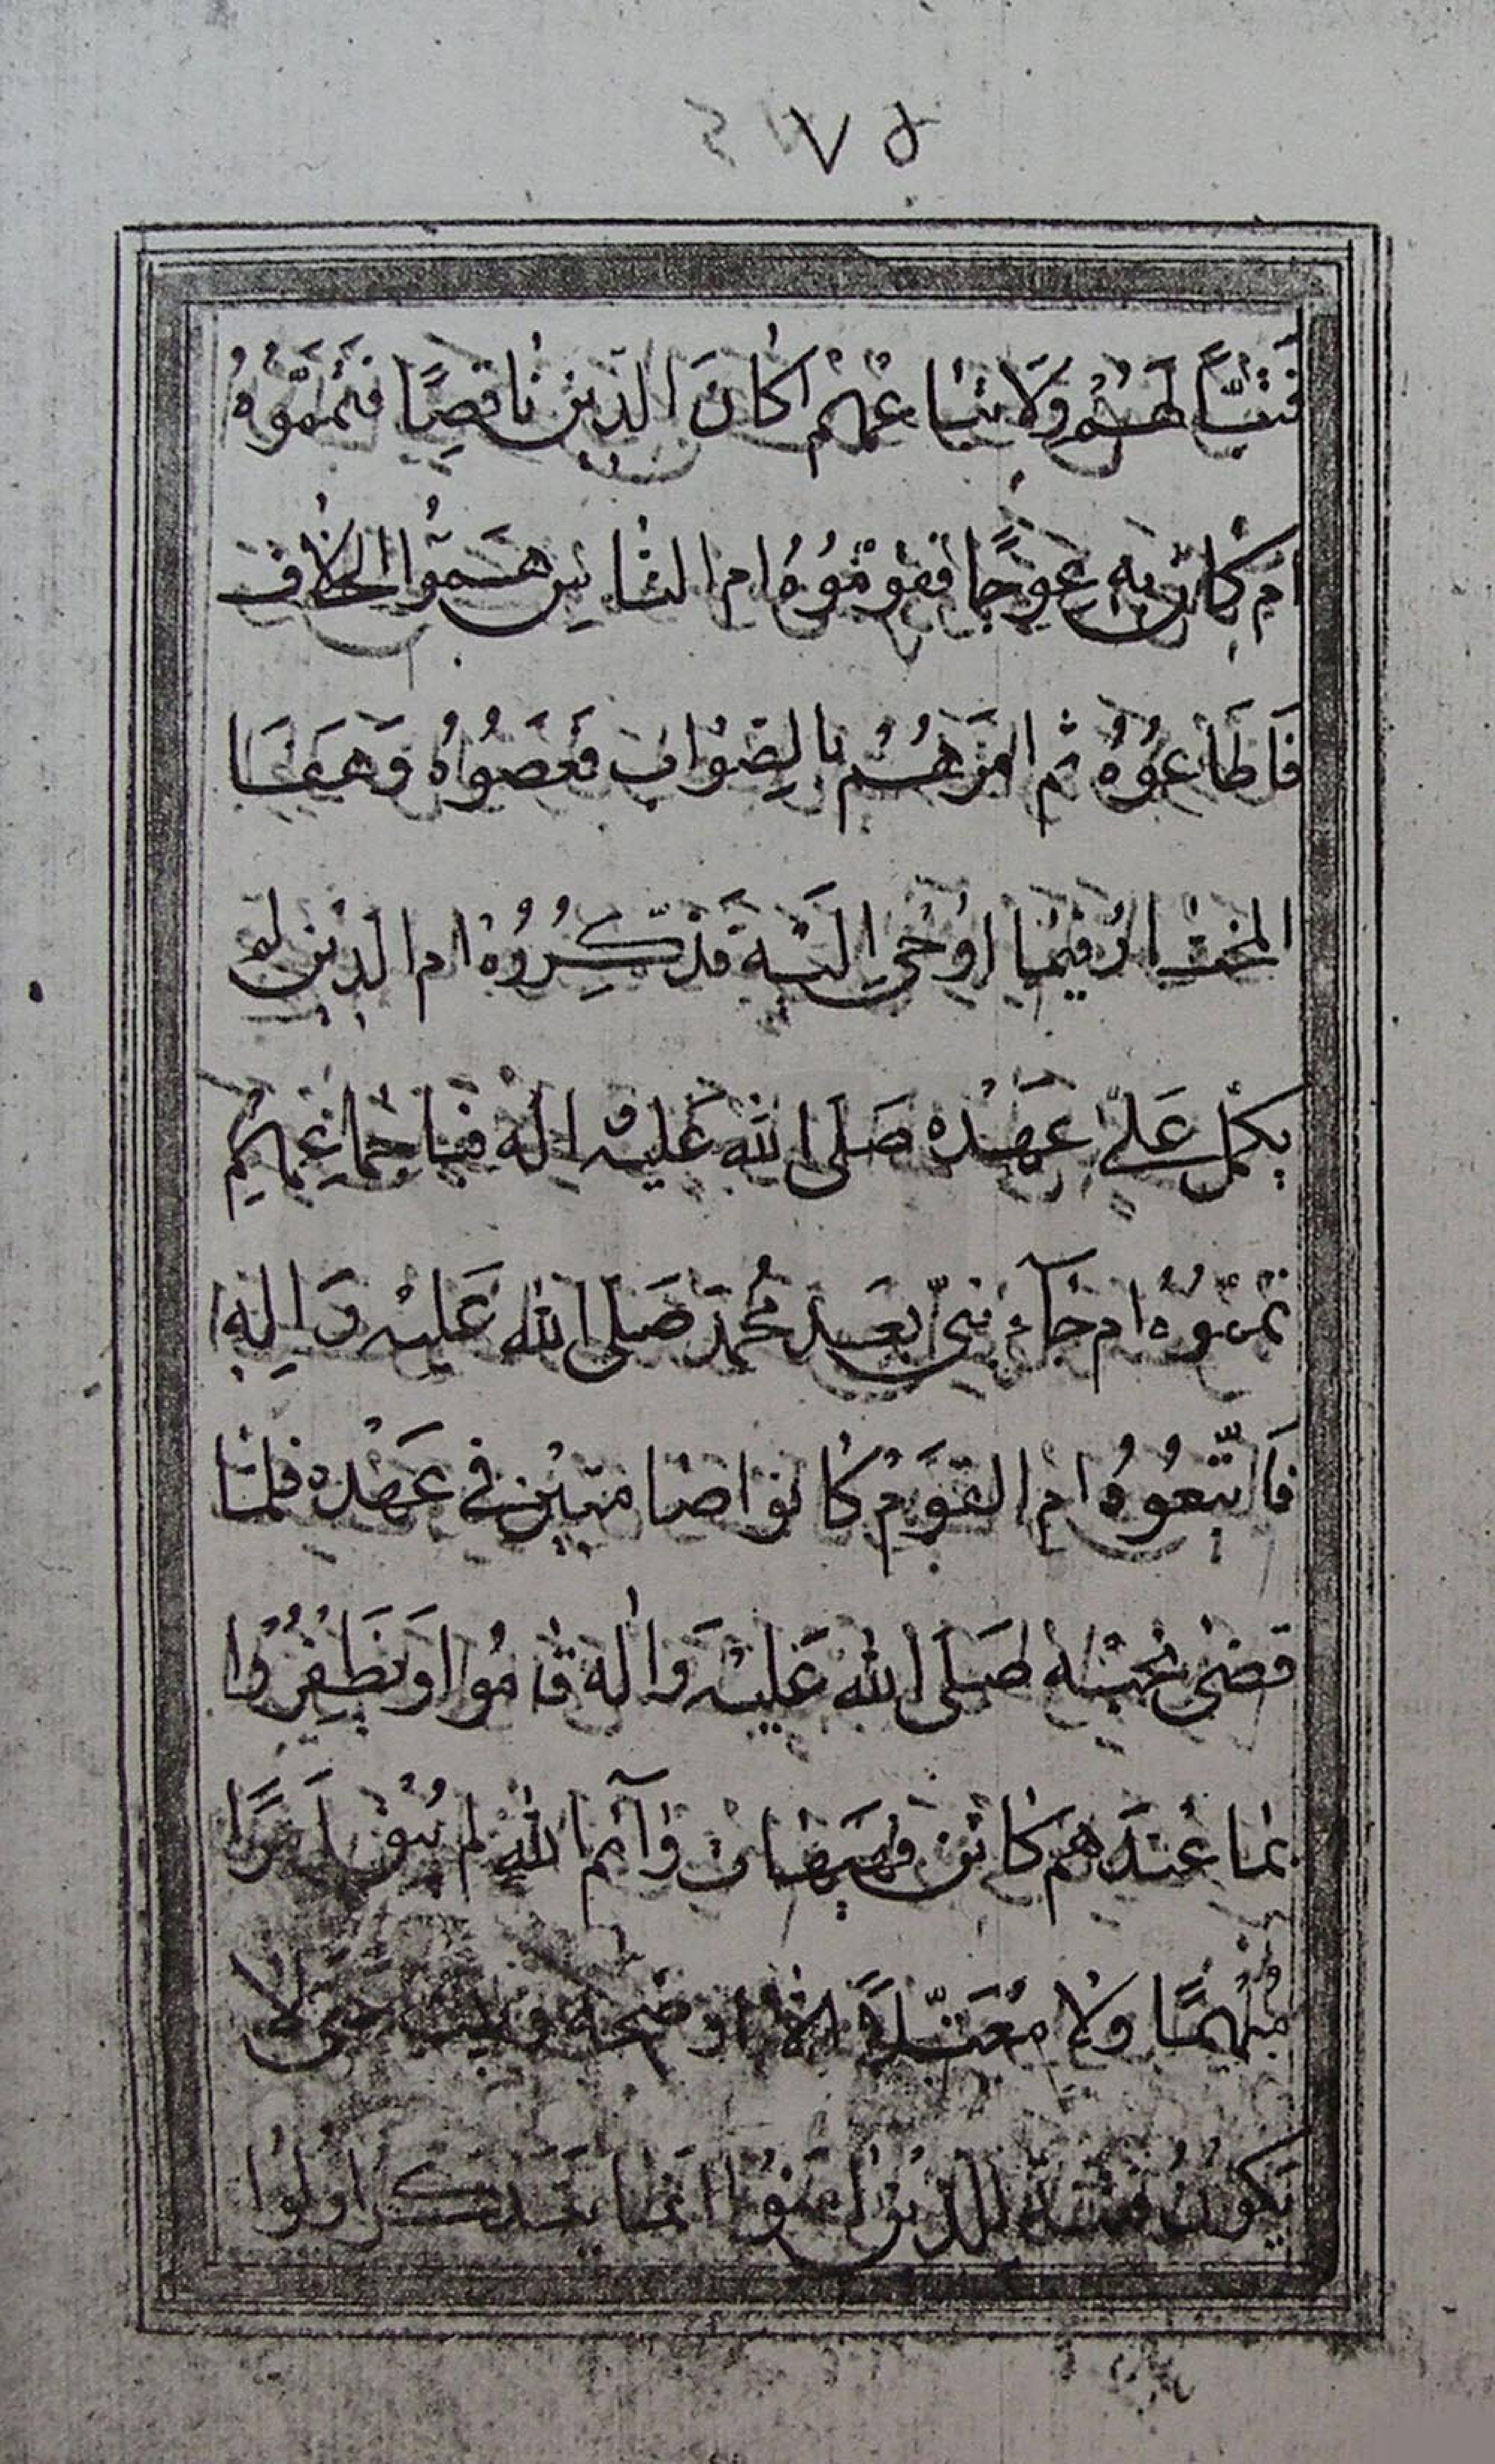 ٧٥
فَتَبًّا لَهُمْ وَلَاتبَاعِهِمْ اكانَ الدّين ناقِصًا فتمّموُهُ
ام كانَ به عِوَجًا فقوّمُوُهُ ام الناس همّوا الخلاف
فَاطَاعُوُهُ ثم امرَهُم بالصّواب فَعَصَوُاهُ وَهَفَا
المختار فيما اوُحي اليه فَذكّرُوُهُ ام الدين لم
يكمل عَلى عَهْده صَلى الله عَليْه اله فيا
تممّوُهُ ام جآء نبيّ بَعد مُحمد صَلى الله عَليْه وَالِه
فَاتّبعُوُهُ ام القوم كانوا صامتين في عَهْده فلمّا
قضىٰ نحبه صَلى الله عَليْه وَاله قاموُا
بما عندهم كان فهيهات وَآيم الله لم يبق امرًا
مُبهمًا ولا مُعَتّلًا الّا اوضحه حتى لا
يَكوُن فتنة للّذين امنوُا انما يتذكر اولوُا